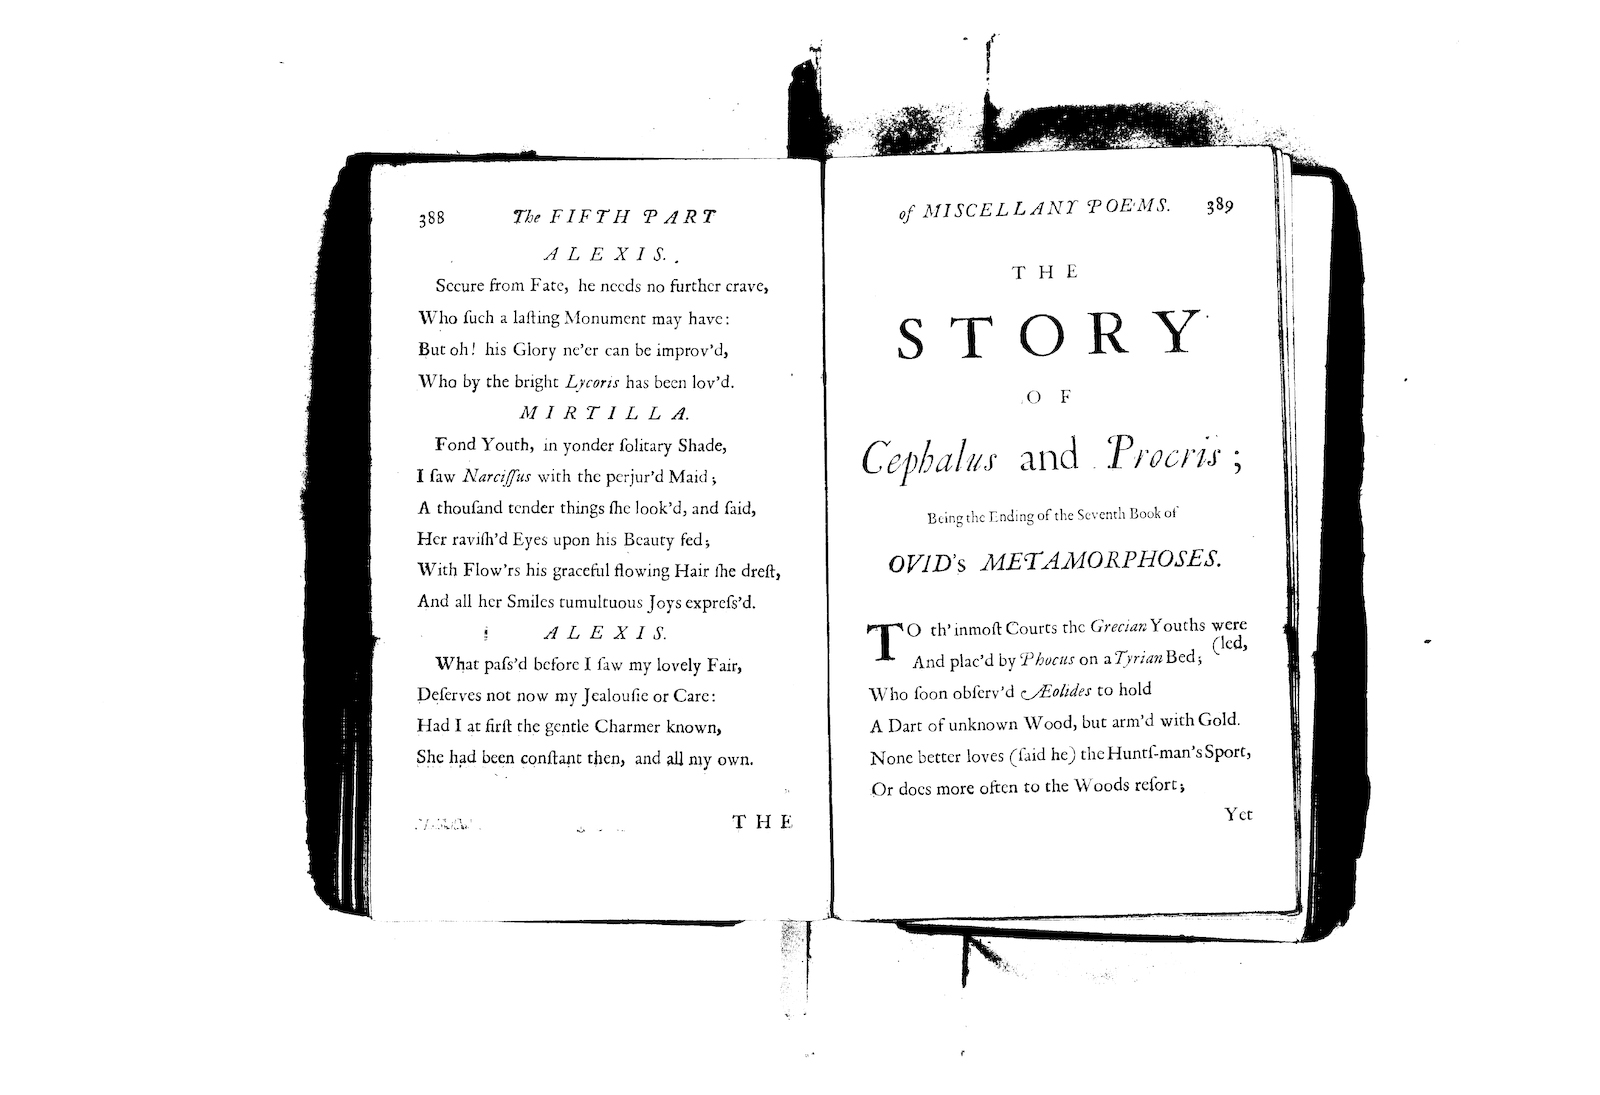 388 The FIFTH PART
ALEXIS.
Secure from Fate, he needs no further crave,
Who ſuch a laſting Monument may have:
But oh! his Glory ne'er can be improv'd,
Who by the bright Lycoris has been lov'd.
MIRTILLA.
Fond Youth, in yonder ſolitary Shade,
I ſaw Narciſſus with the perjur'd Maid;
A thouſand tender things ſhe look'd, and ſaid,
Her raviſh'd Eyes upon his Beauty fed;
With Flow'rs his graceful flowing Hair ſhe dreſt,
And all her Smiles tumultuous Joys expreſs'd.
ALEXIS.
What paſs'd before I ſaw my lovely Fair,
Deſerves not now my Jealouſie or Care:
Had I at firſt the gentle Charmer known,
She had been conſtant then, and all my own.
THE
of MISCELLANY POEMS. 389
THE
STORY
OF
Cephalus and Procris;
Being the Ending of the Seventh Book of
OVID's METAMORPHOSES.
TO th' inmoſt Courts the Grecian Youths were
(led,
And plac'd by Phocus on a Tyrian Bed;
Who ſoon obſerv'd Æolides to hold
A Dart of unknown Wood, but arm'd with Gold.
None better loves (ſaid he) the Huntſ-man's Sport,
Or does more often to the Woods reſort;
Yet